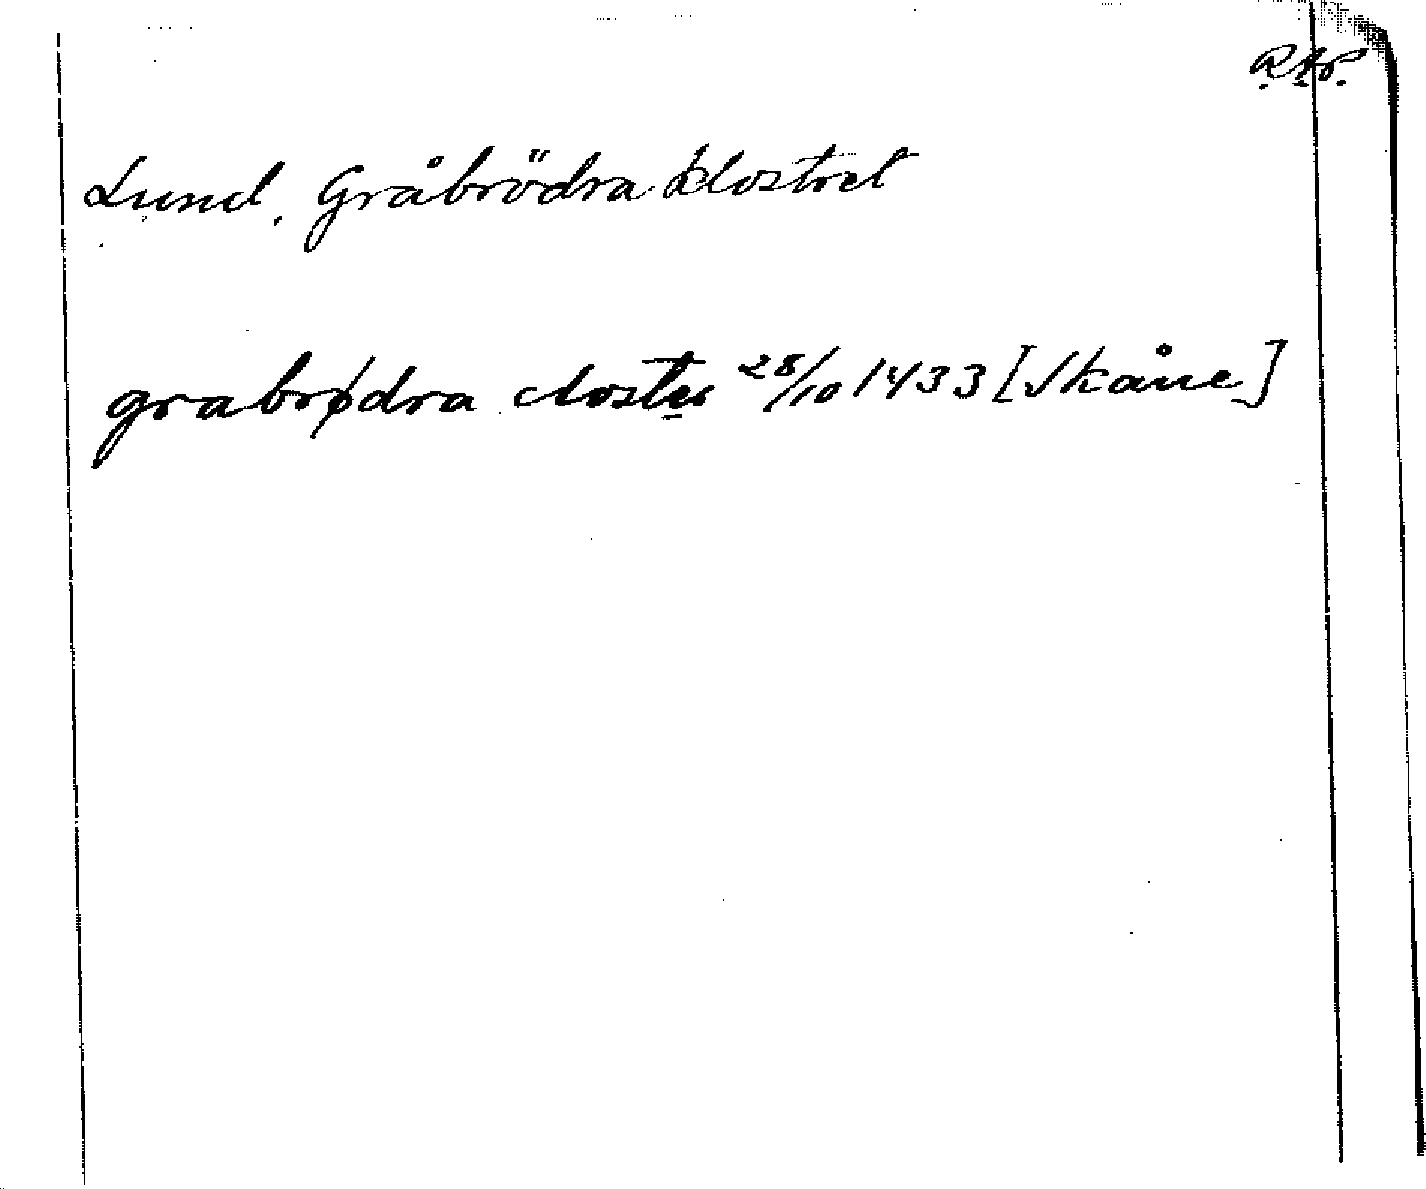 R.A.P.
Lund, Gråbrödra klostret
grabrødra closter 28/10 1433 [Skåne]